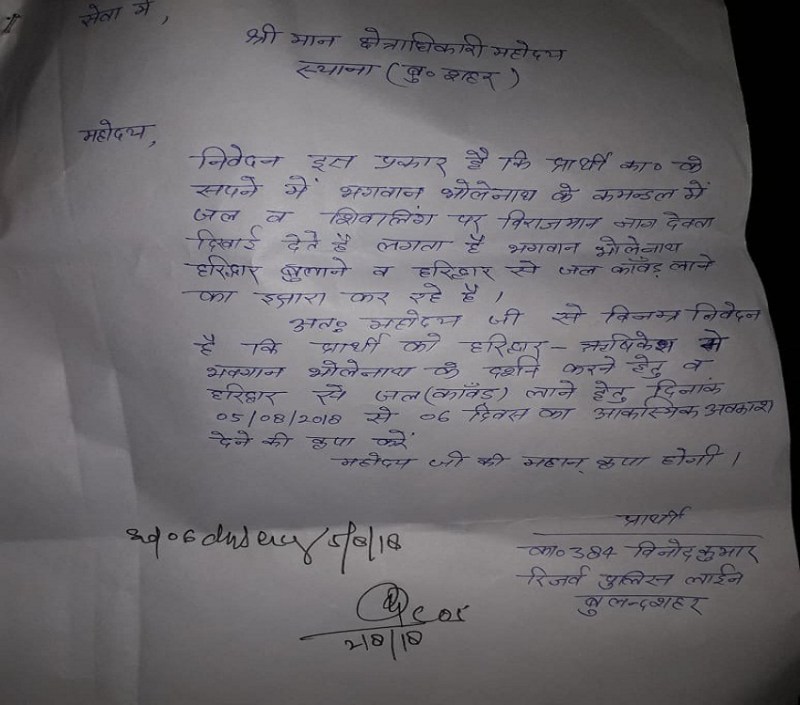 सेवा में,
श्री मान क्षेत्राधिकारी महोदय
स्याना (बु० शहर)
महोदय,
निवेदन इस प्रकार है कि प्रार्थी का० के
सपने में भगवान भोलेनाथ के कमन्डल में
जल व शिवालिंग पर विराजमान नाग देवता
दिखाई देते है लगता है भगवान भोलेनाथ
हरिद्वार बुलाने व हरिद्वार से जल काँवड़ लाने
का इशारा कर रहे है।
अतः महोदय जी से विनम्र निवेदन
है कि प्रार्थी को हरिद्वार - ऋषिकेश में
भवगान भोलेनाथ के दर्शन करने हेतु व
हरिद्वार से जल (काँवड़) लाने हेतु दिनांक
05/08/2018 से 06 दिवस का आकस्मिक अवकाश
देने की कृपा करें
महोदय जी की महान् कृपा होगी।
प्रार्थी
का० 384 विनोद कुमार
रिजर्व पुलिस लाईन
बुलन्दशहर
06 5/8/18
2/8/18